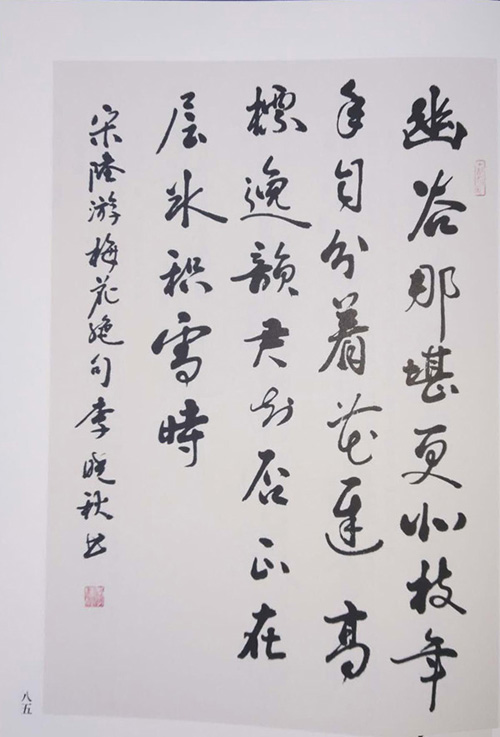 幽谷那堪更北枝年
年自分着花遲高
標逸韻君知否正在
层冰积雪時
宋陸游梅花绝句李晓秋书
八五